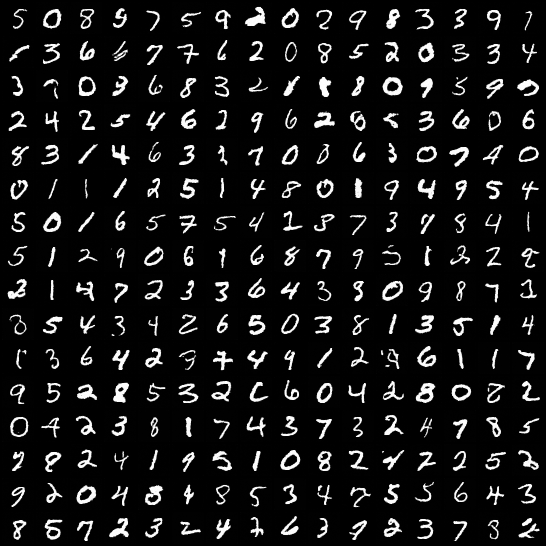 5 0 8 9 7 5 9 2 0 2 9 8 3 3 9 1
3 6 7 7 6 2 0 8 5 2 0 3 3 4
3 7 0 3 6 8 3 2 1 1 8 0 9 5 9
2 4 2 5 4 6 2 9 6 2 8 5 3 6 0 6
8 3 1 4 6 3 2 7 0 8 6 3 0 7 4 0
0 1 1 1 2 5 1 4 8 0 1 9 4 9 5 4
5 0 1 6 5 7 5 4 2 8 7 3 4 8 4 1
5 1 2 9 0 6 1 6 8 7 9 5 1 2 2 2
2 1 4 7 2 3 3 6 4 3 8 0 9 8 7 3
8 5 4 3 4 2 6 5 0 3 8 1 3 5 1 4
1 3 6 4 2 9 7 4 9 1 2 9 6 1 1 7
9 5 2 8 5 3 2 6 0 4 2 8 0 8 2
0 4 2 3 8 1 7 4 3 7 3 2 4 7 8 5
7 8 2 4 1 9 5 1 0 8 2 2 2 5 2
9 2 0 4 8 4 8 5 3 4 7 5 5 6 4 3
8 5 7 2 3 2 4 7 6 3 9 2 3 7 8 2